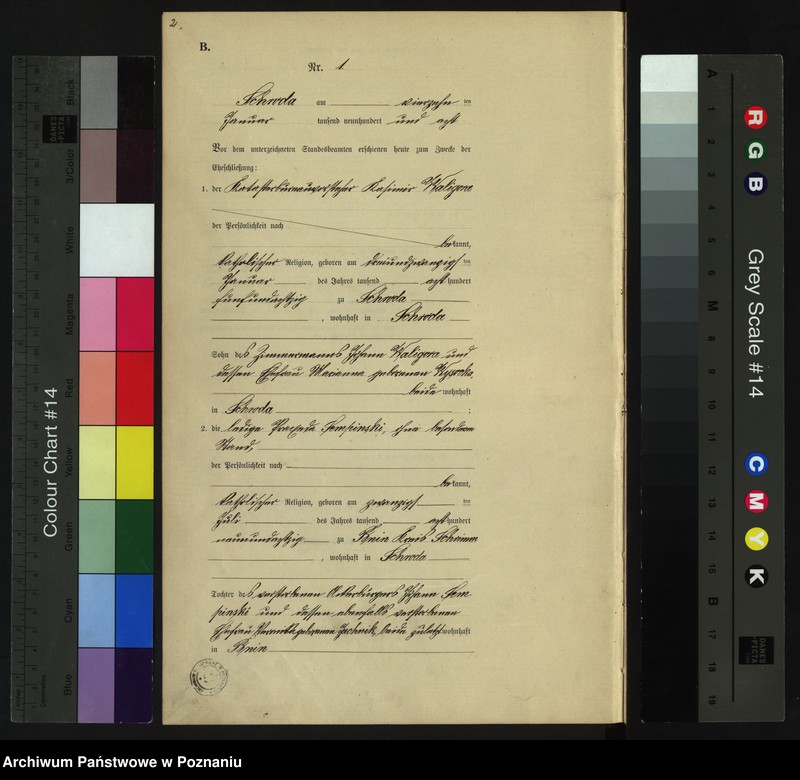 2.
B.
Nr. 1.
Schroda am vierzehn ten
Januar tausend neunhundert und acht
Vor dem unterzeichneten Standesbeamten erschienen heute zum Zwecke der
Eheschließung:
1. der Katasterbureauvorsteher Kasimir Waligora
der Persönlichkeit nach
bekannt,
katholischer Religion, geboren am dreiundzwanzigsten
Januar des Jahres tausend acht hundert
fünfundachtzig zu Schroda
, wohnhaft in Schroda
Sohn des Zimmermanns Johann Waligora und
dessen Ehefrau Marianna geborenen
beide wohnhaft
in Schroda ;
2. die ledige Praxeda Sempinski, ohne besonderen
Stand,
der Persönlichkeit nach
bekannt,
katholischer Religion, geboren am zwanzigsten
Juli des Jahres tausend acht hundert
neunundachtzig zu Bnin Kreis Schrimm
, wohnhaft in Schroda
Tochter des verstorbenen Ackerbürgers Johann Sem-
pinski und dessen ebenfalls verstorbenen
Ehefrau geborenen beide zuletzt wohnhaft
in Bnin
Colour Chart #14
Blue Cyan Green Yellow Red Magenta White 3/Color Black
Centimetres
DANES PICTA
Grey Scale #14
R G B C M Y K
A 1 2 3 4 5 6 M 8 9 10 11 12 13 14 15 B 17 18 19
DANES PICTA
Archiwum Państwowe w Poznaniu